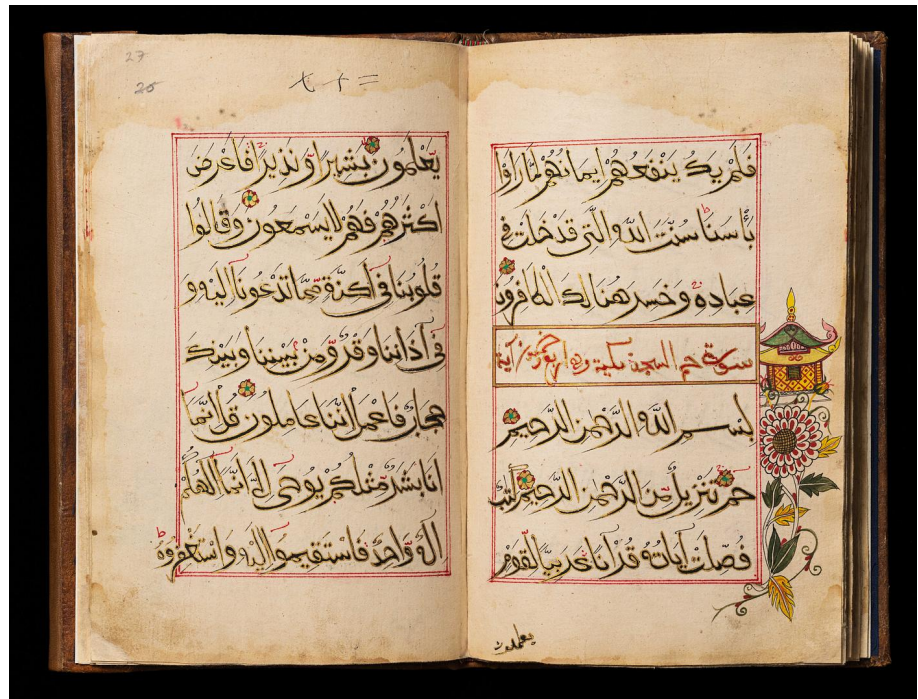 فَلَمْ يَكُ يَنْفَعُهُمْ إِيمَانُهُمْ لَمَّا رَأَوْا
بَأْسَنَا سُنَّتَ اللَّهِ الَّتِي قَدْ خَلَتْ فِي
عِبَادِهِ وَخَسِرَ هُنَالِكَ الْكَافِرُونَ
سورة حم السجدة مكية وهي اربع وخمسون آية
بِسْمِ اللَّهِ الرَّحْمَنِ الرَّحِيمِ
حم تَنْزِيلٌ مِنَ الرَّحْمَنِ الرَّحِيمِ كِتَابٌ
فُصِّلَتْ آيَاتُهُ قُرْآنًا عَرَبِيًّا لِقَوْمٍ
يعلمون
27
25
يَعْلَمُونَ بَشِيرًا وَنَذِيرًا فَأَعْرَضَ
أَكْثَرُهُمْ فَهُمْ لَا يَسْمَعُونَ وَقَالُوا
قُلُوبُنَا فِي أَكِنَّةٍ مِمَّا تَدْعُونَا إِلَيْهِ وَ
فِي آذَانِنَا وَقْرٌ وَمِنْ بَيْنِنَا وَبَيْنِكَ
حِجَابٌ فَاعْمَلْ إِنَّنَا عَامِلُونَ قُلْ إِنَّمَا
أَنَا بَشَرٌ مِثْلُكُمْ يُوحَى إِلَيَّ أَنَّمَا إِلَهُكُمْ
إِلَهٌ وَاحِدٌ فَاسْتَقِيمُوا إِلَيْهِ وَاسْتَغْفِرُوهُ